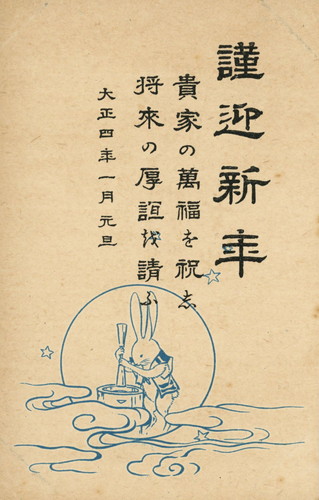 謹迎新年
貴家の萬福を祝し
将來の厚誼を請ふ
大正四年一月元旦